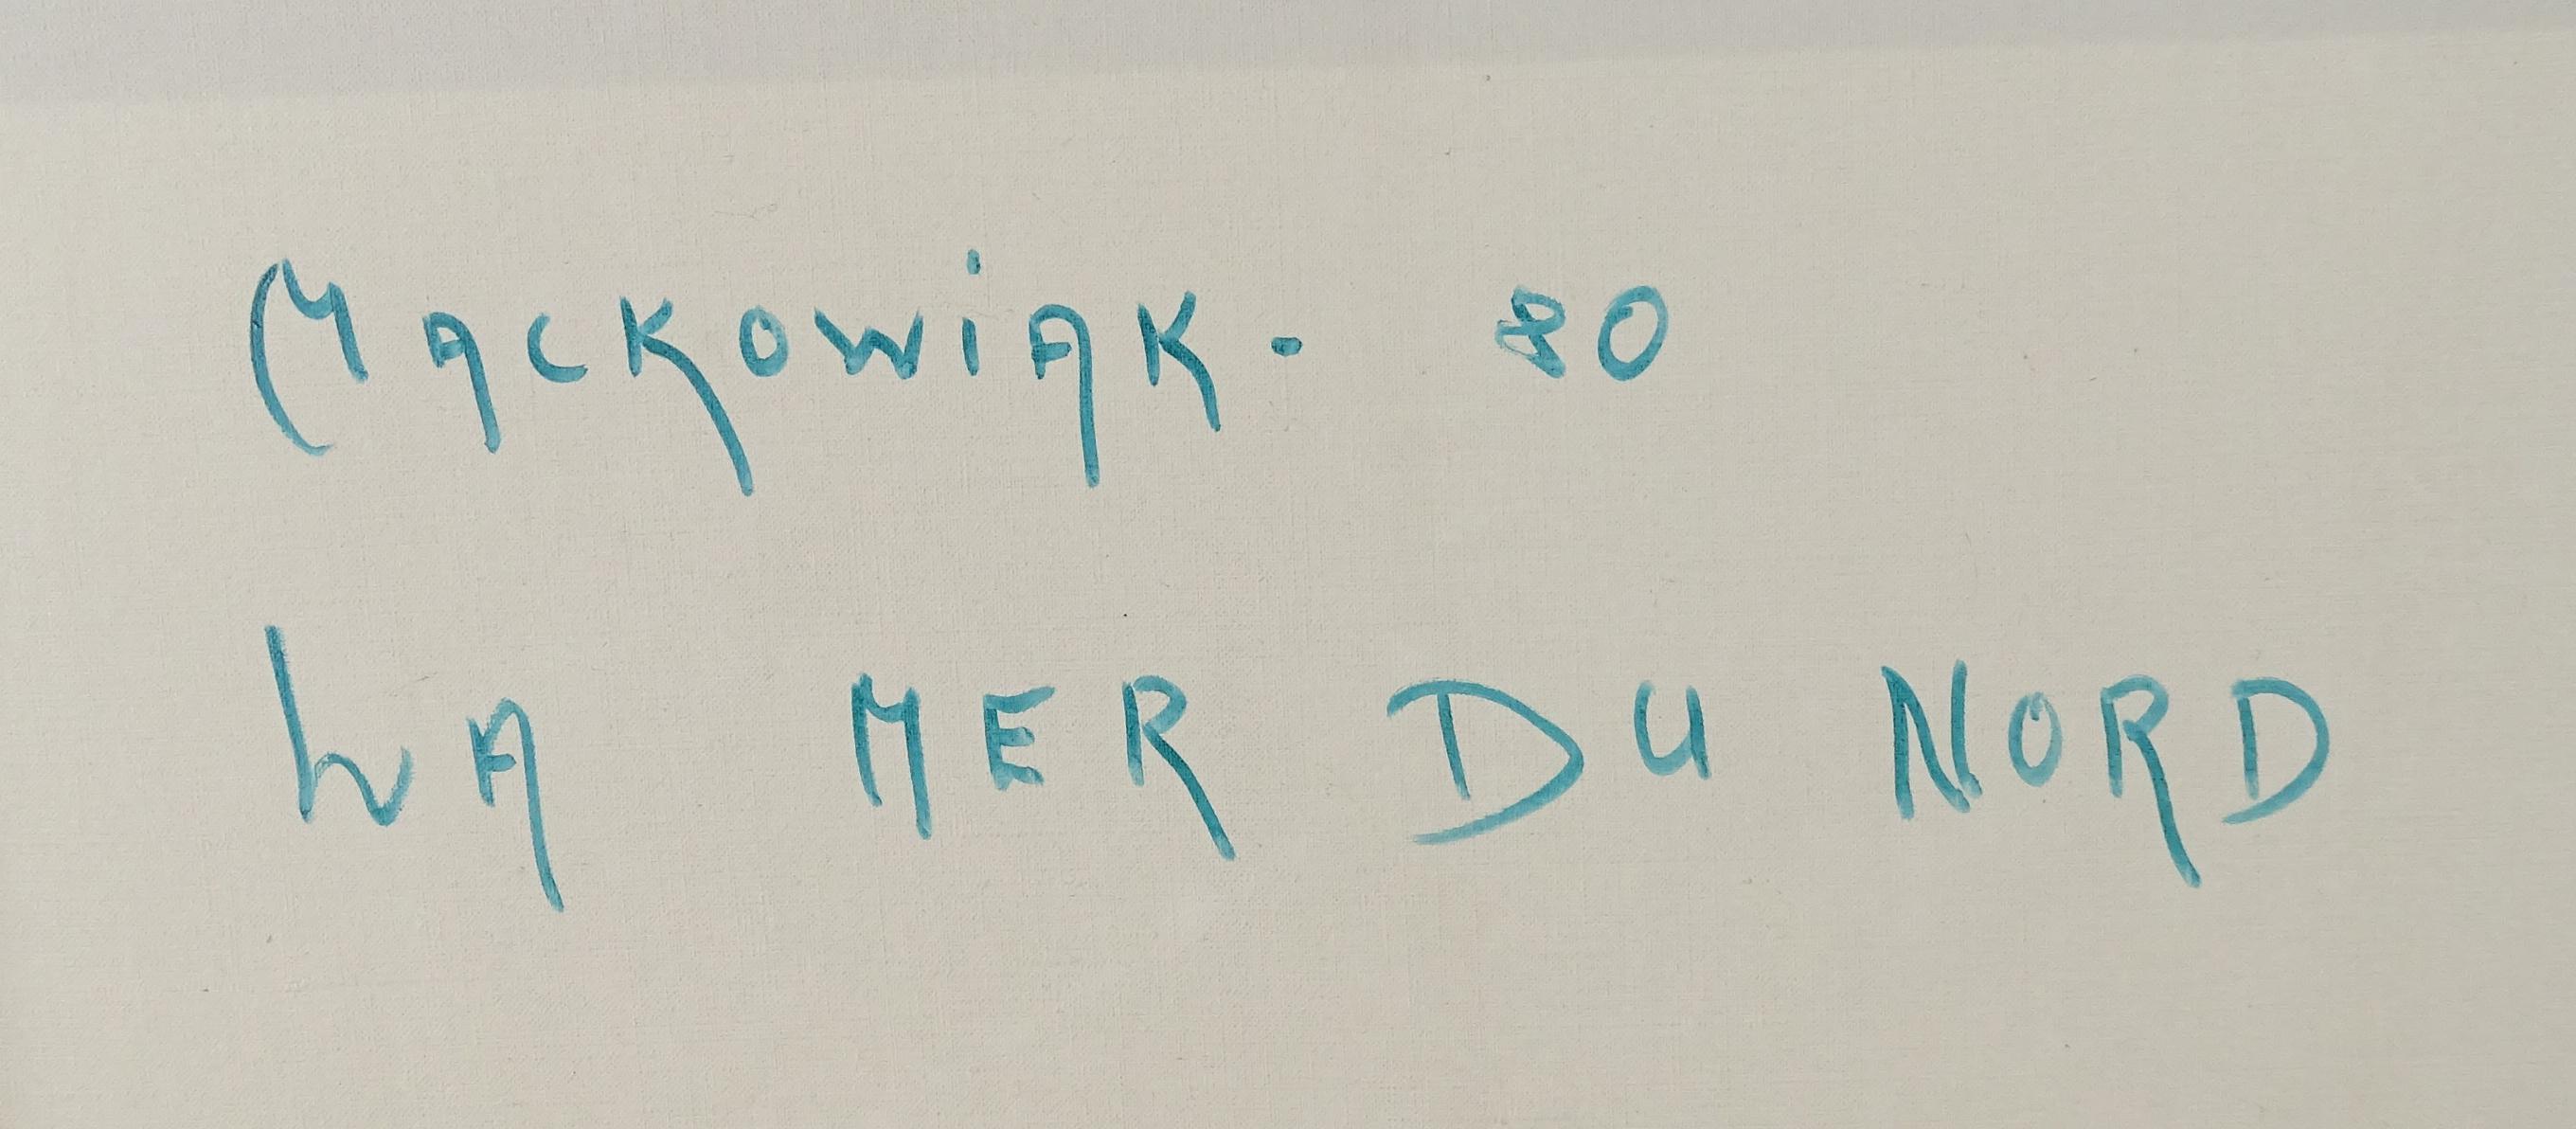 MACKOWiAK. 80
LA MER DU NORD